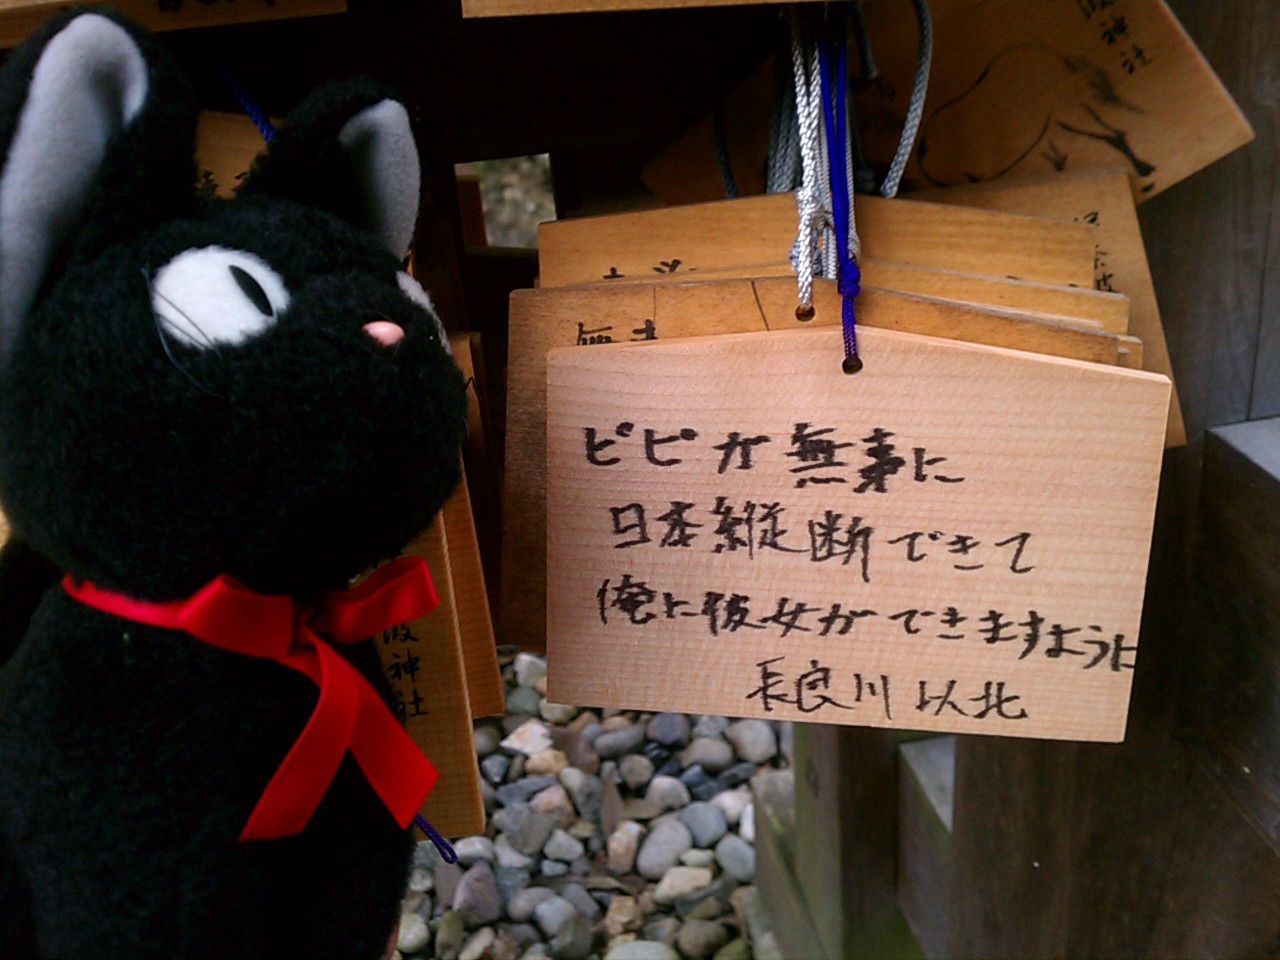 ピピが無事に
日本縦断できて
俺に彼女ができますように
長良川以北
神社
波神社
無事